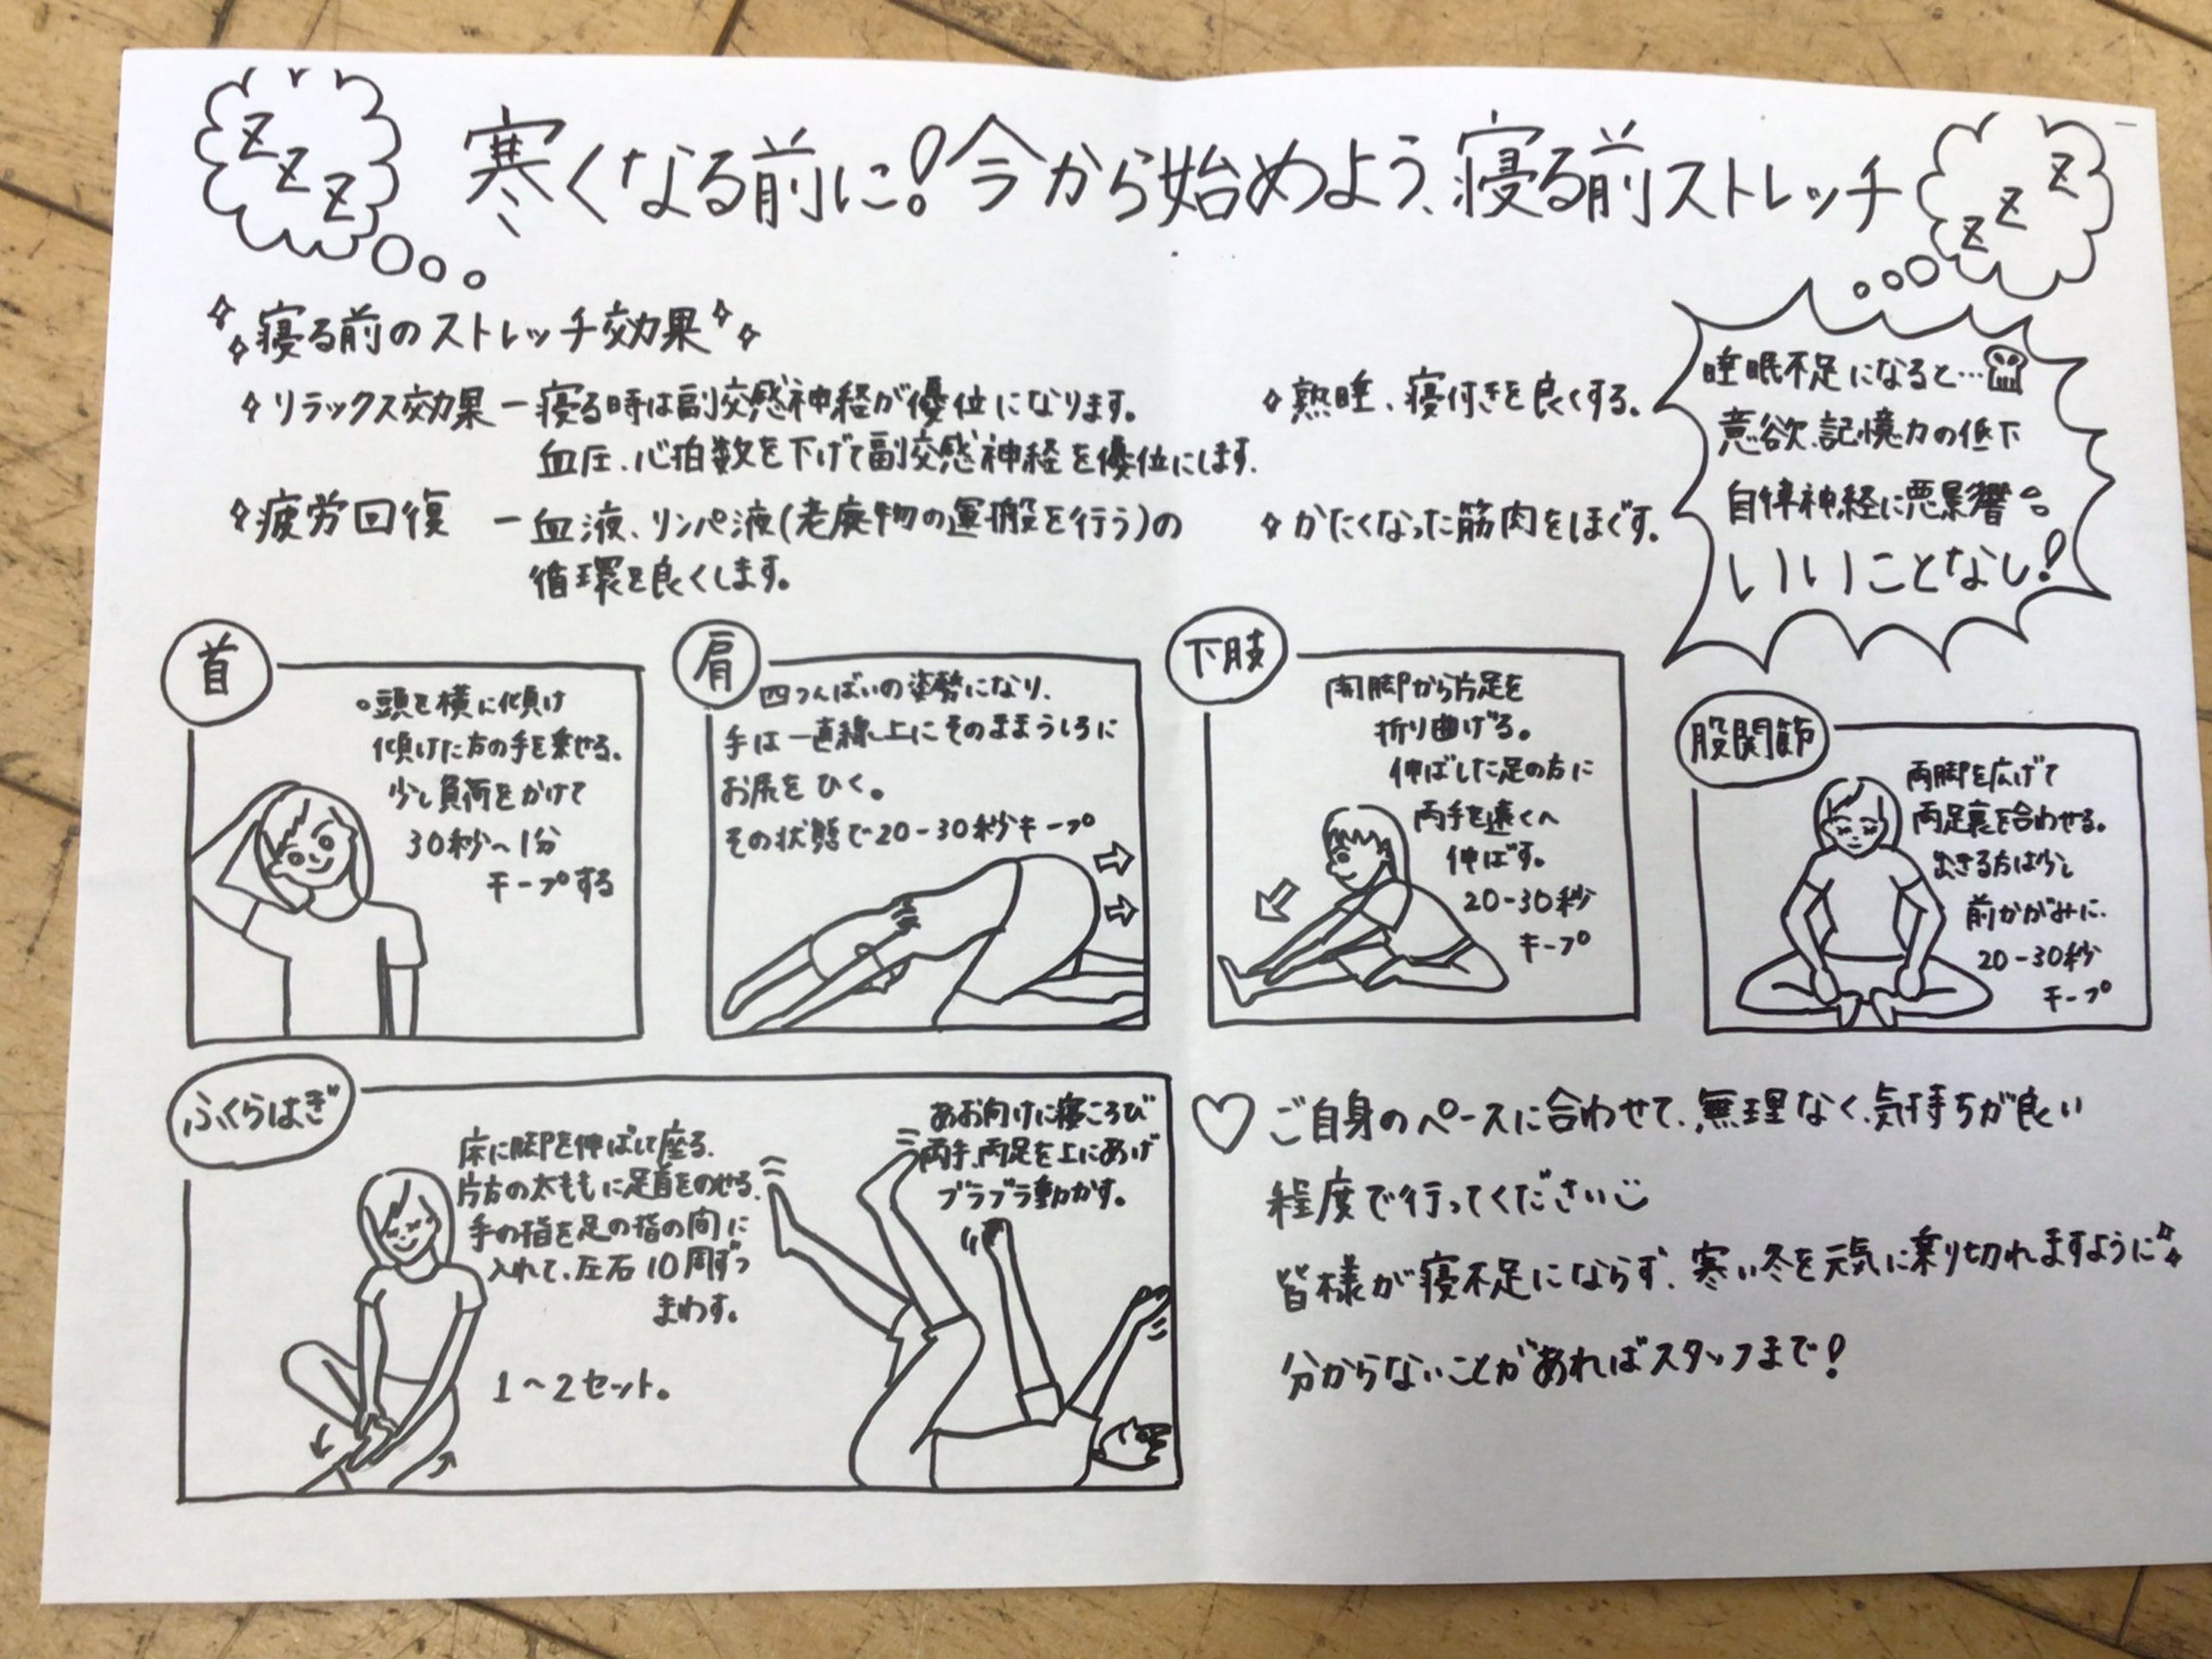 Z Z Z
寒くなる前に!今から始めよう、寝る前ストレッチ
Z Z Z
寝る前のストレッチ効果
リラックス効果ー寝る時は副交感神経が優位になります。
血圧、心拍数を下げて副交感神経を優位にします。
疲労回復ー血液、リンパ液(老廃物の運搬を行う)の
循環を良くします。
熟睡、寝付きを良くする。
かたくなった筋肉をほぐす。
睡眠不足になると…
意欲、記憶力の低下
自律神経に悪影響。
いいことなし!
首
。頭を横に傾け
傾けた方の手を乗せる。
少し負荷をかけて
30秒〜1分
キープする
肩
四つんばいの姿勢になり、
手は一直線上にそのままうしろに
お尻をひく。
その状態で20-30秒キープ
下肢
開脚から片足を
折り曲げる。
伸ばした足の方に
両手を遠くへ
伸ばす。
20-30秒
キープ
股関節
両脚を広げて
両足裏を合わせる。
出きる方は少し
前かがみに。
20-30秒
キープ
ふくらはぎ
床に脚を伸ばして座る。
片方の太ももに足首をのせる。
手の指を足の指の間に
入れて、左右10周ずつ
まわす。
1〜2セット。
あお向けに寝ころび
両手、両足を上にあげ
ブラブラ動かす。
♡ご自身のペースに合わせて、無理なく、気持ちが良い
程度で行ってください
皆様が寝不足にならず、寒い冬を元気に乗り切れますように
分からないことがあればスタッフまで!